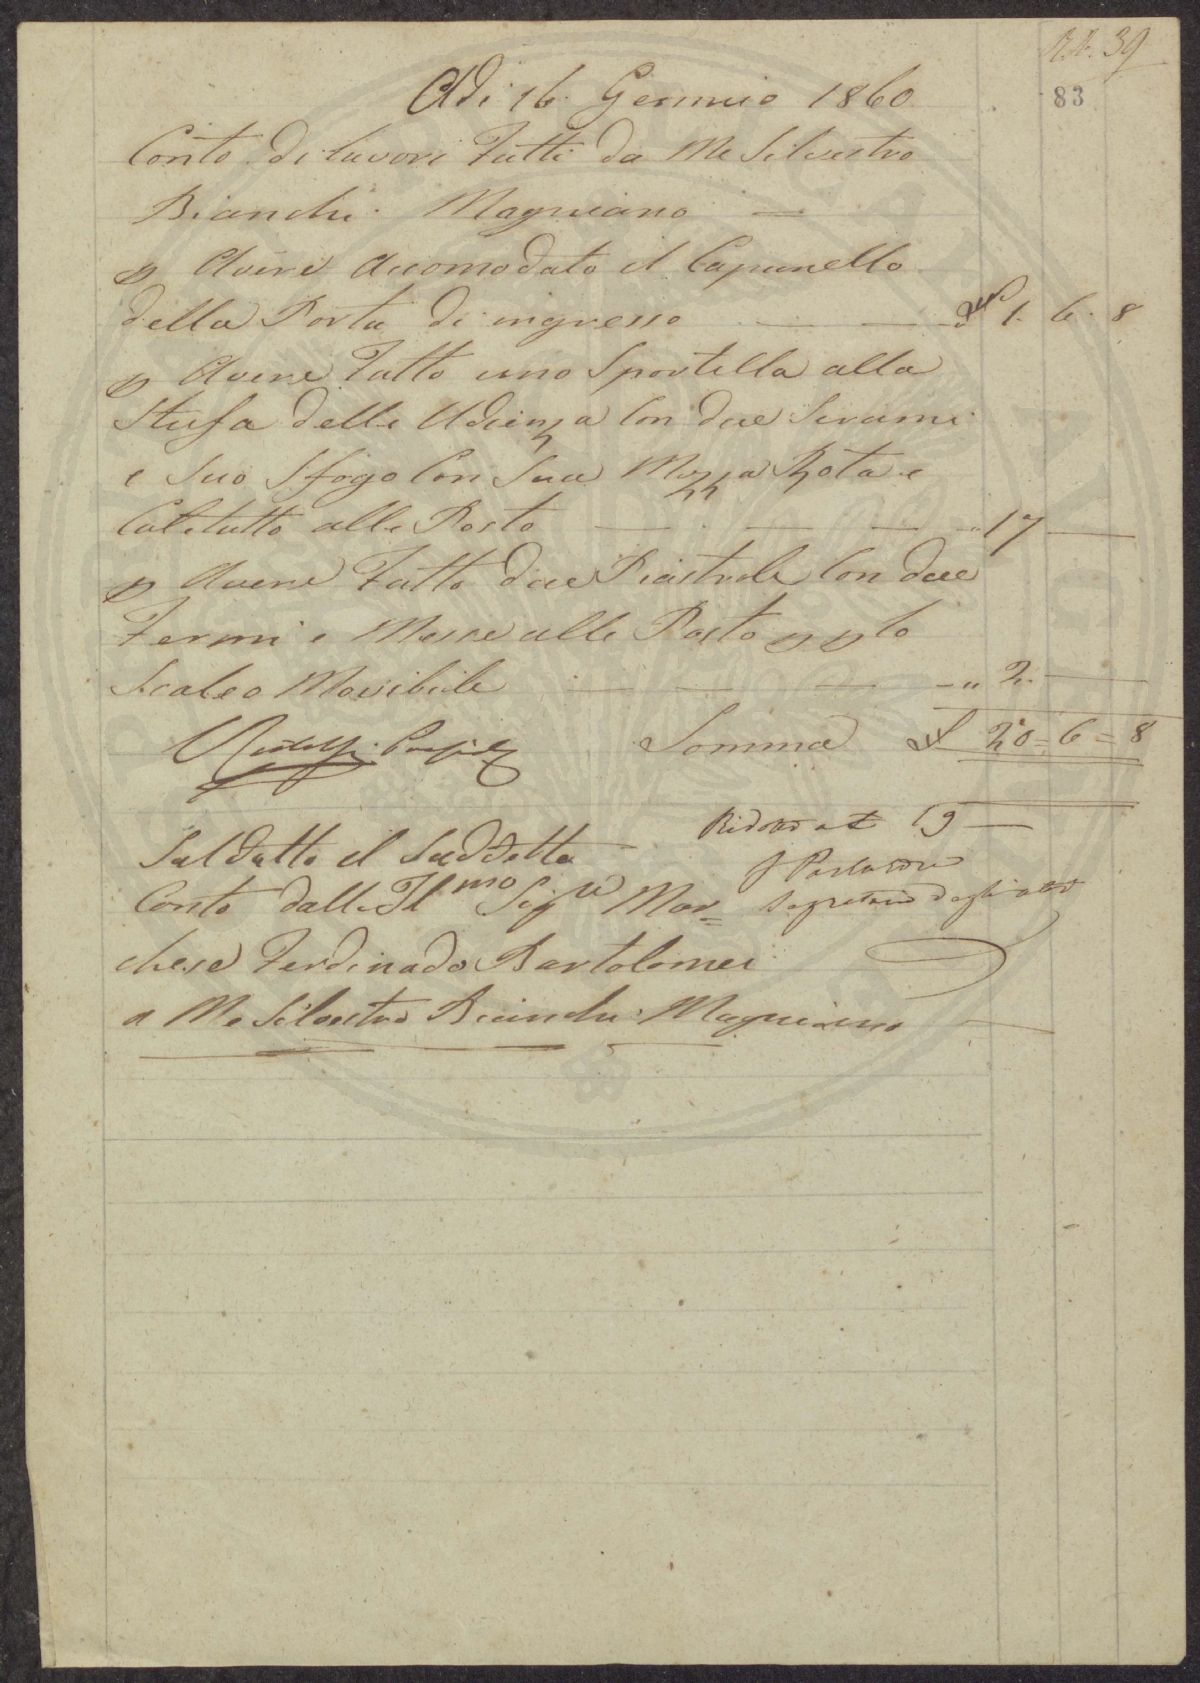 N. 39
83
Adi 16. Gennaio 1860
Conto di lavori Fatti da Me Silvestro
Bianchi Magniano —
p Avere Acomodato il Capanello
della Porta di ingresso — — £ 1. 6. 8
p Avere Fatto uno Sportella alla
Stufa delle Udienza Con due Serami
e Suo Sfogo Con Sua Mezza Rota e
Coletutto alle Posto — — — " 17 —
p Avere Fatto due Piastrele Con due
Fermi e Messe alle Posto p plo
Scaleo Movibile — — — — " 2. —
Somma £ 20 = 6 = 8
Ridotto a £ 19 —
Saldatto il Suddetto
Conto dalle Il mo Sig re Mar=
Segretario degli
chese Ferdinado Bartolomei
a Me Silvestro Bianchi Magniano